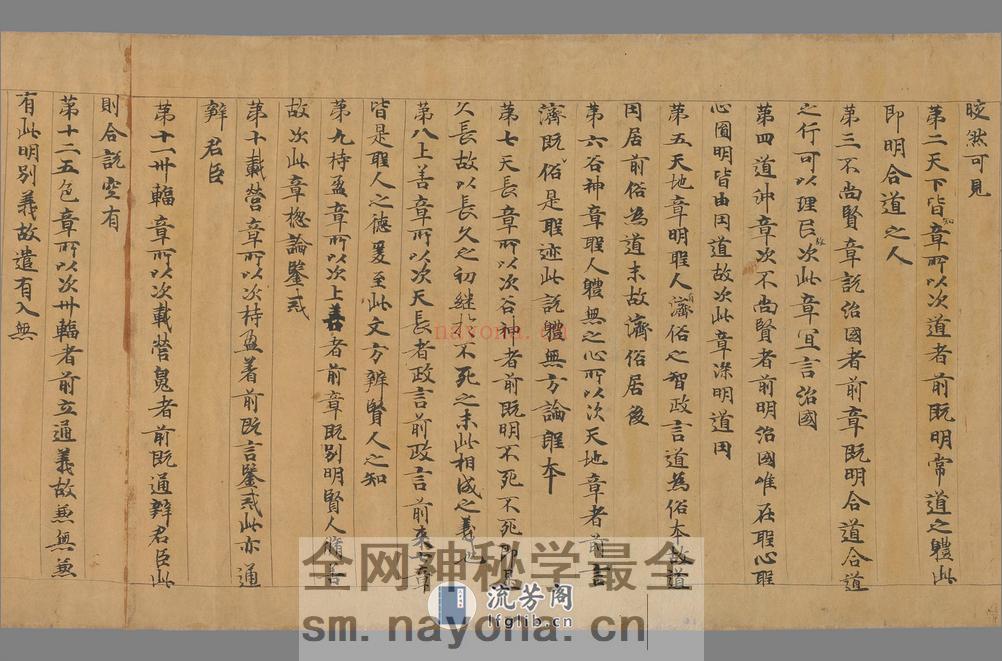 皎然可見
第二天下皆知章所以次道者前既明常道之體此
即明合道之人
第三不尚賢章説治國者前章既明合道合道
之行可以理民故次此章宜言治國
第四道沖章次不尚賢者前明治國唯在聖心聖
心圓明皆由因道故次此章深明道因
第五天地章明聖人濟俗之智政言道為俗本故道
因居前俗為道末故濟俗居後
第六谷神章聖人體無之心所以次天地章者前言
濟既俗是聖迹此説體無方論聖本
第七天長章所以次谷神者前既明不死不死即是
久長故以長久之初繼不死之末此相成之義也
第八上善章所以次天長者政言前政言前來七章
皆是聖人之德爰至此文方辨賢人之知
第九持盈章所以次上善者前章既別明賢人
故次此章惣論鑒戒
第十載營章所以次持盈者前既言鑒戒此亦通
辨君臣
第十一卅輻章所以次載營魄者前既通辨君臣此
則合説空有
第十二五色章所以次卅輻者前立通義故兼無兼
有此明別義故遣有入無
nayona.cn
全网神秘学最全
流芳阁
lfglib.cn
sm.nayona.cn